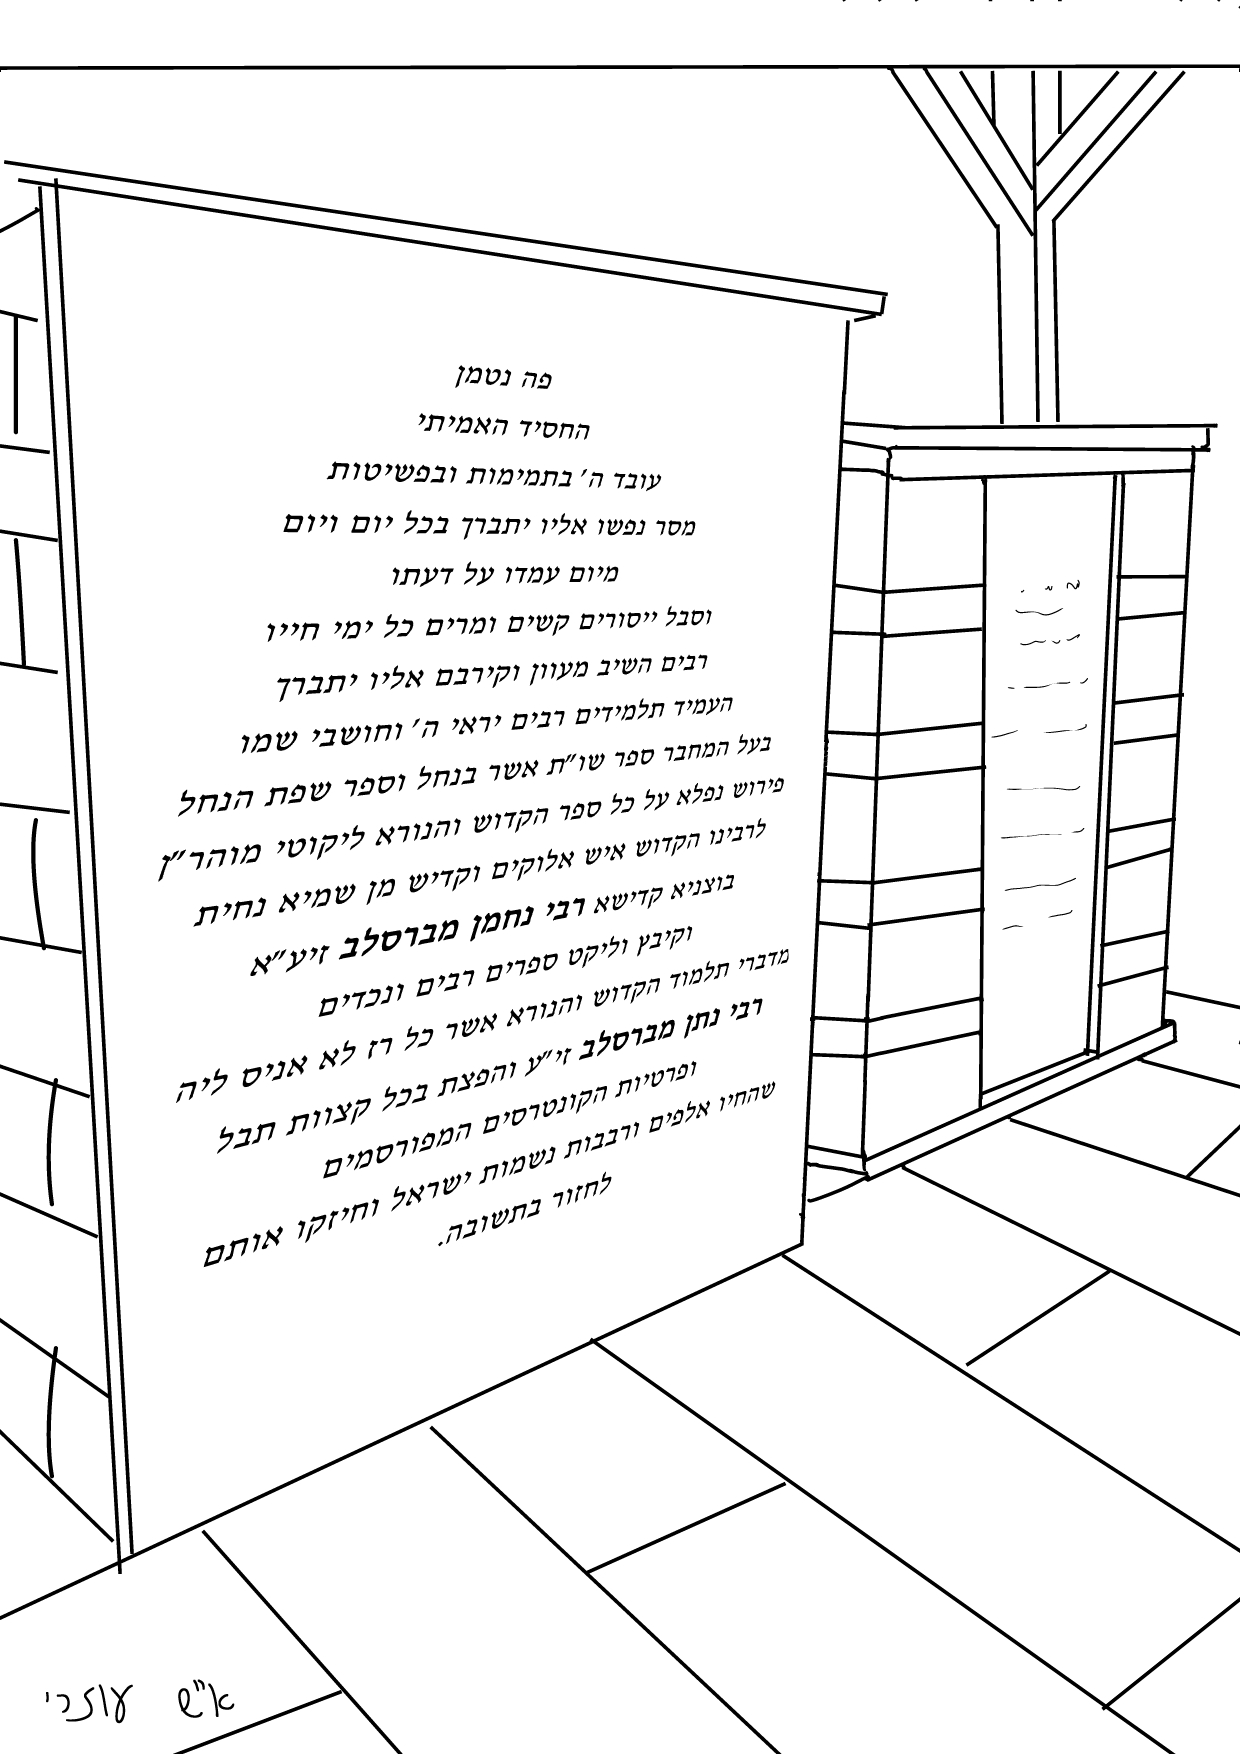 פה נטמן
החסיד האמיתי
עובד ה׳ בתמימות ובפשיטות
מסר נפשו אליו יתברך בכל יום ויום
מיום עמדו על דעתו
וסבל ייסורים קשים ומרים כל ימי חייו
רבים השיב מעוון וקירבם אליו יתברך
העמיד תלמידים רבים יראי ה׳ וחושבי שמו
בעל המחבר ספר שו״ת אשר בנחל וספר שפת הנחל
פירוש נפלא על כל ספר הקדוש והנורא ליקוטי מוהר״ן
לרבינו הקדוש איש אלוקים וקדיש מן שמיא נחית
בוצניא קדישא רבי נחמן מברסלב זיע״א
וקיבץ וליקט ספרים רבים ונכדים
מדברי תלמוד הקדוש והנורא אשר כל רז לא אניס ליה
רבי נתן מברסלב זי״ע והפצת בכל קצוות תבל
ופרטיות הקונטרסים המפורסמים
שהחיו אלפים ורבבות נשמות ישראל וחיזקו אותם
לחזור בתשובה.
א״ש עוזרי